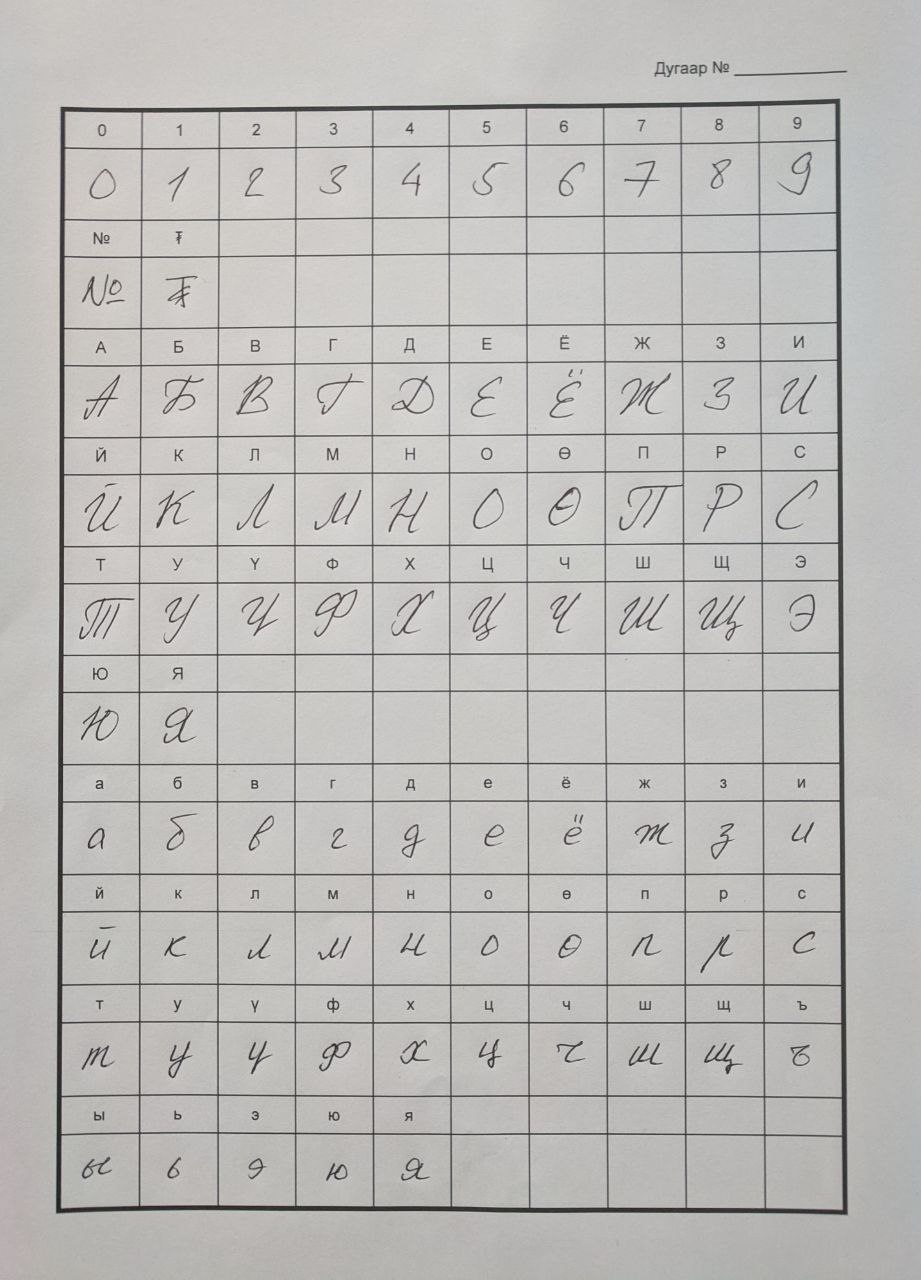 Дугаар № ___________
0 1 2 3 4 5 6 7 8 9
0 1 2 3 4 5 6 7 8 9
№ ₮
№ ₮
А Б В Г Д Е Ё Ж З И
А Б В Г Д Е Ё Ж З И
Й К Л М Н О Ө П Р С
Й К Л М Н О Ө П Р С
Т У Ү Ф Х Ц Ч Ш Щ Э
Т У Ү Ф Х Ц Ч Ш Щ Э
Ю Я
Ю Я
а б в г д е ё ж з и
а б в г д е ё ж з и
й к л м н о ө п р с
й к л м н о ө п р с
т у ү ф х ц ч ш щ ъ
т у ү ф х ц ч ш щ ъ
ы ь э ю я
ы ь э ю я